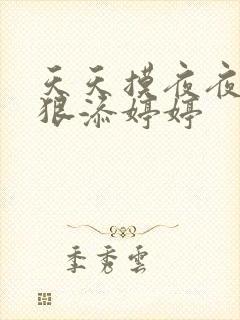 天天摸夜夜
狠添婷婷
季秀雲